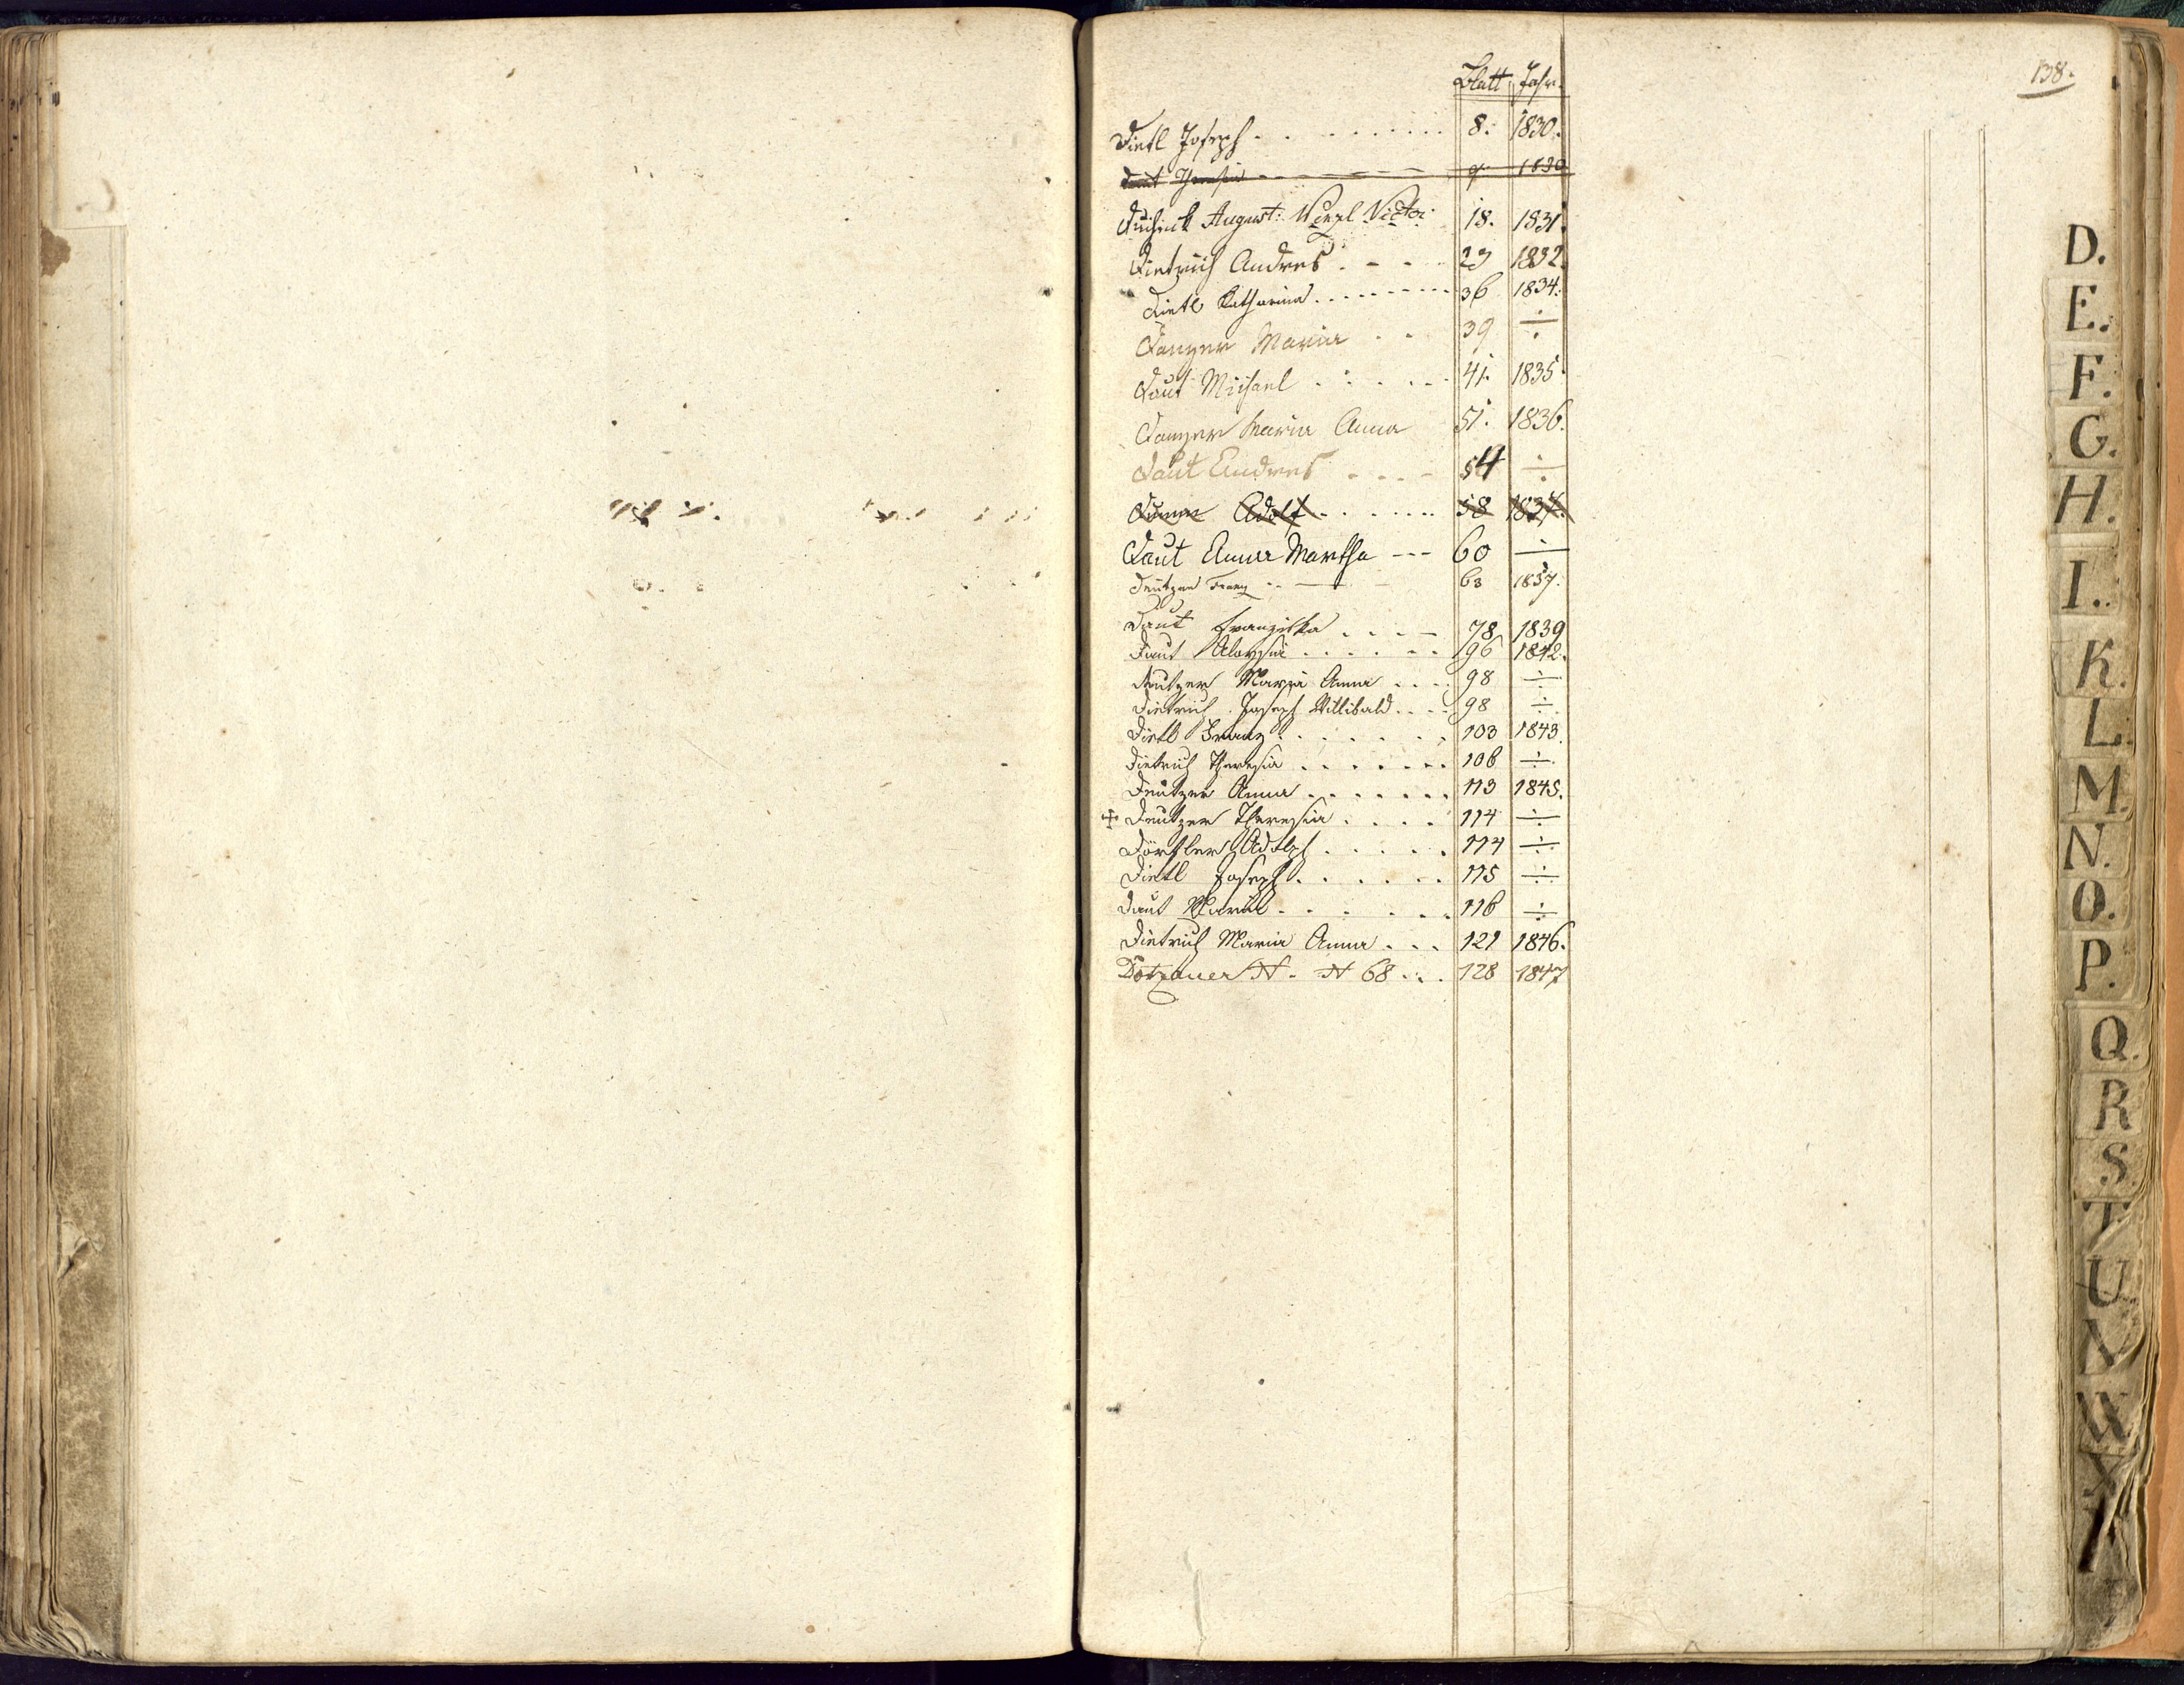 138.
Blatt Jahr.
Dietl Joseph 8. 1830.
Daut Theresia 9 1830
August: Wenzl Victor 18. 1831.
Dietrich Andres 23 1832.
Dietl Katharina 36 1834.
Danzer Maria 39 ÷
Daut Michael 41. 1835
Danzer Maria Anna 51. 1836.
Daut Andres 54 ÷
Adolf 58 1837.
Daut Anna Martha 60 ÷
Deutzer Franz 63 1837.
Daut Franziska 78 1839
Daut Aloysia 96 1842.
Deutzer Maria Anna 98 ÷
Dietrich Joseph Willibald 98 ÷
Dietl Franz 103 1843.
Dietrich Theresia 106 ÷
Deutzer Anna 113 1845.
Deutzer Theresia 114 ÷
Dörfler Adolph 114 ÷
Dietl Joseph 115 ÷
Daut Maria 116 ÷
Dietrich Maria Anna 121 1846.
Dotzauer N. N 68 128 1847
D.
E.
F.
G.
H.
I.
K.
L.
M.
N.
O.
P.
Q.
R
S.
T
U
V
W
X